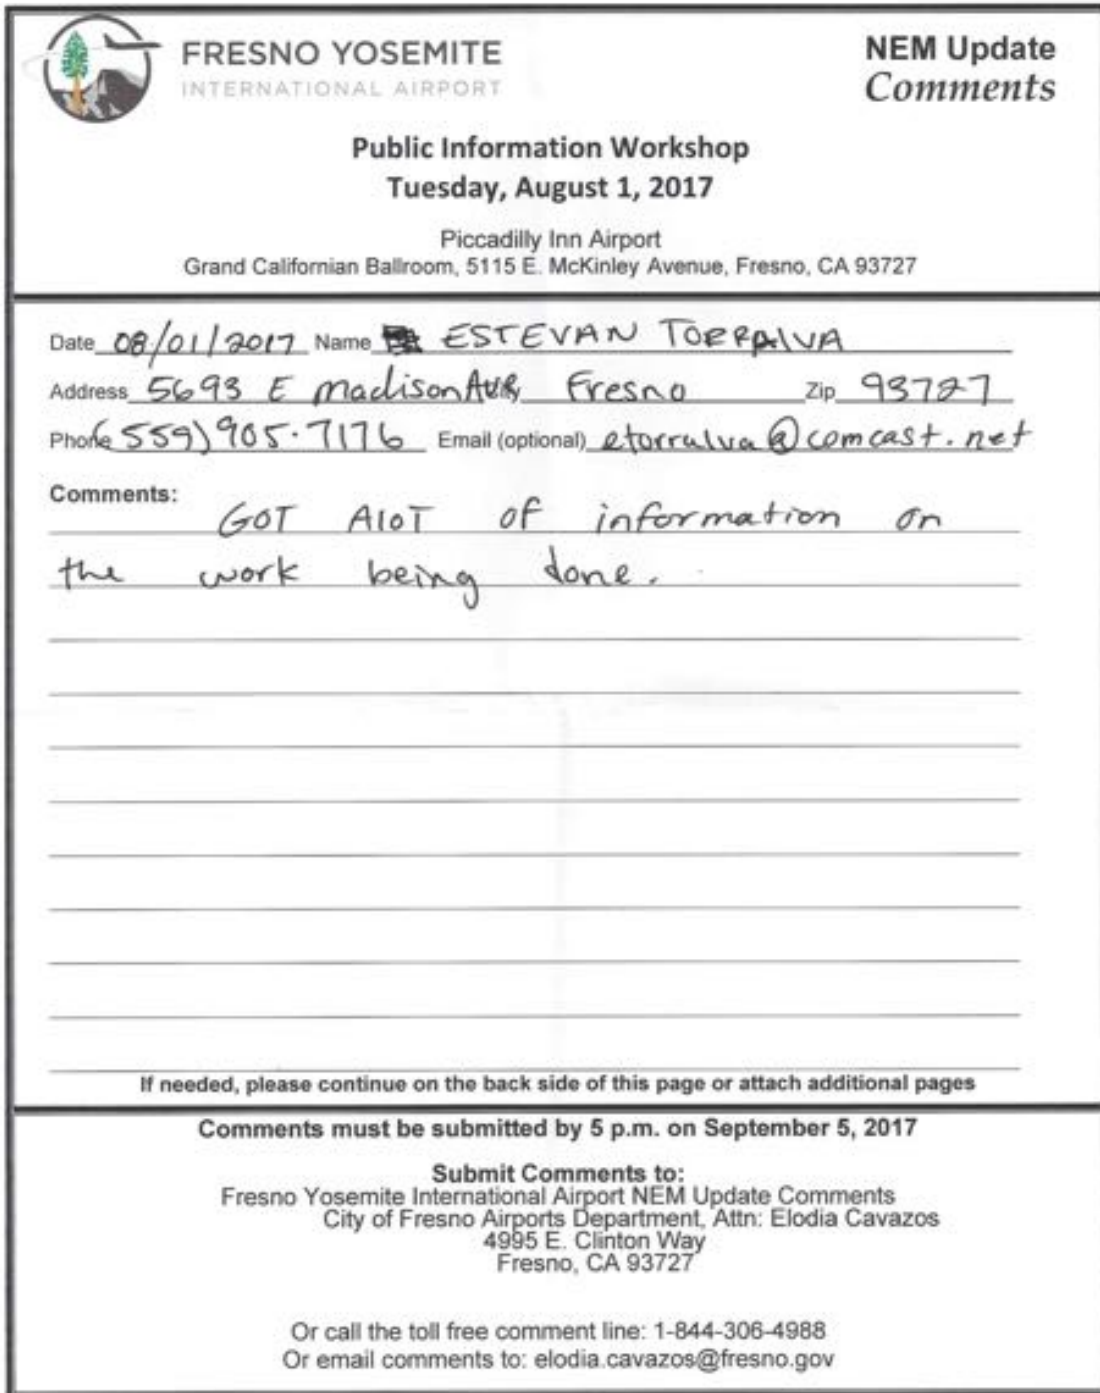 FRESNO YOSEMITE
INTERNATIONAL AIRPORT
NEM Update
Comments
Public Information Workshop
Tuesday, August 1, 2017
Piccadilly Inn Airport
Grand Californian Ballroom, 5115 E. McKinley Avenue, Fresno, CA 93727
Date 08/01/2017 Name ESTEVAN TORRALVA
Address 5693 E Madison Ave, Fresno Zip 93727
Phone (559) 905-7176 Email (optional) etorralva@comcast.net
Comments:
GOT AlOT of information on
the work being done.
If needed, please continue on the back side of this page or attach additional pages
Comments must be submitted by 5 p.m. on September 5, 2017
Submit Comments to:
Fresno Yosemite International Airport NEM Update Comments
City of Fresno Airports Department, Attn: Elodia Cavazos
4995 E. Clinton Way
Fresno, CA 93727
Or call the toll free comment line: 1-844-306-4988
Or email comments to: elodia.cavazos@fresno.gov